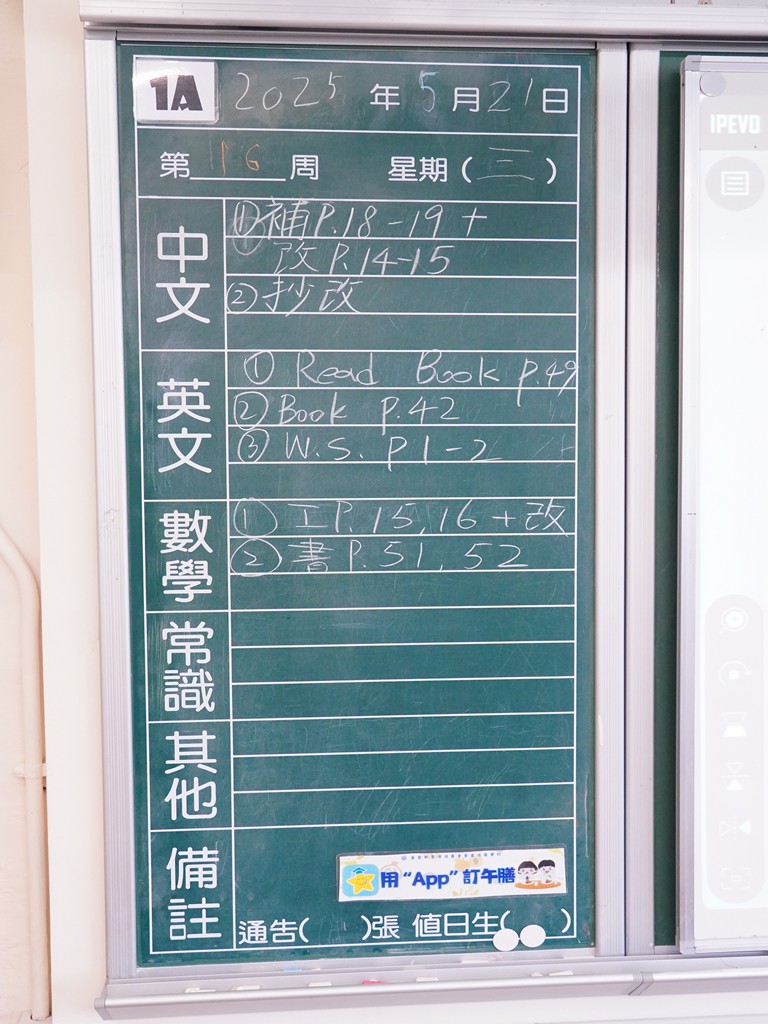 1A 2025年5月21日
第116周 星期(三)
中文
①補P.18-19+
改P.14-15
②抄改
英文
①Read Book p.49
②Book p.42
③W.S. P1-2
數學
①工P.15,16+改
②書P.51,52
常識
其他
備註
用“App”訂午膳
通告( )張 值日生( )
IPEVO